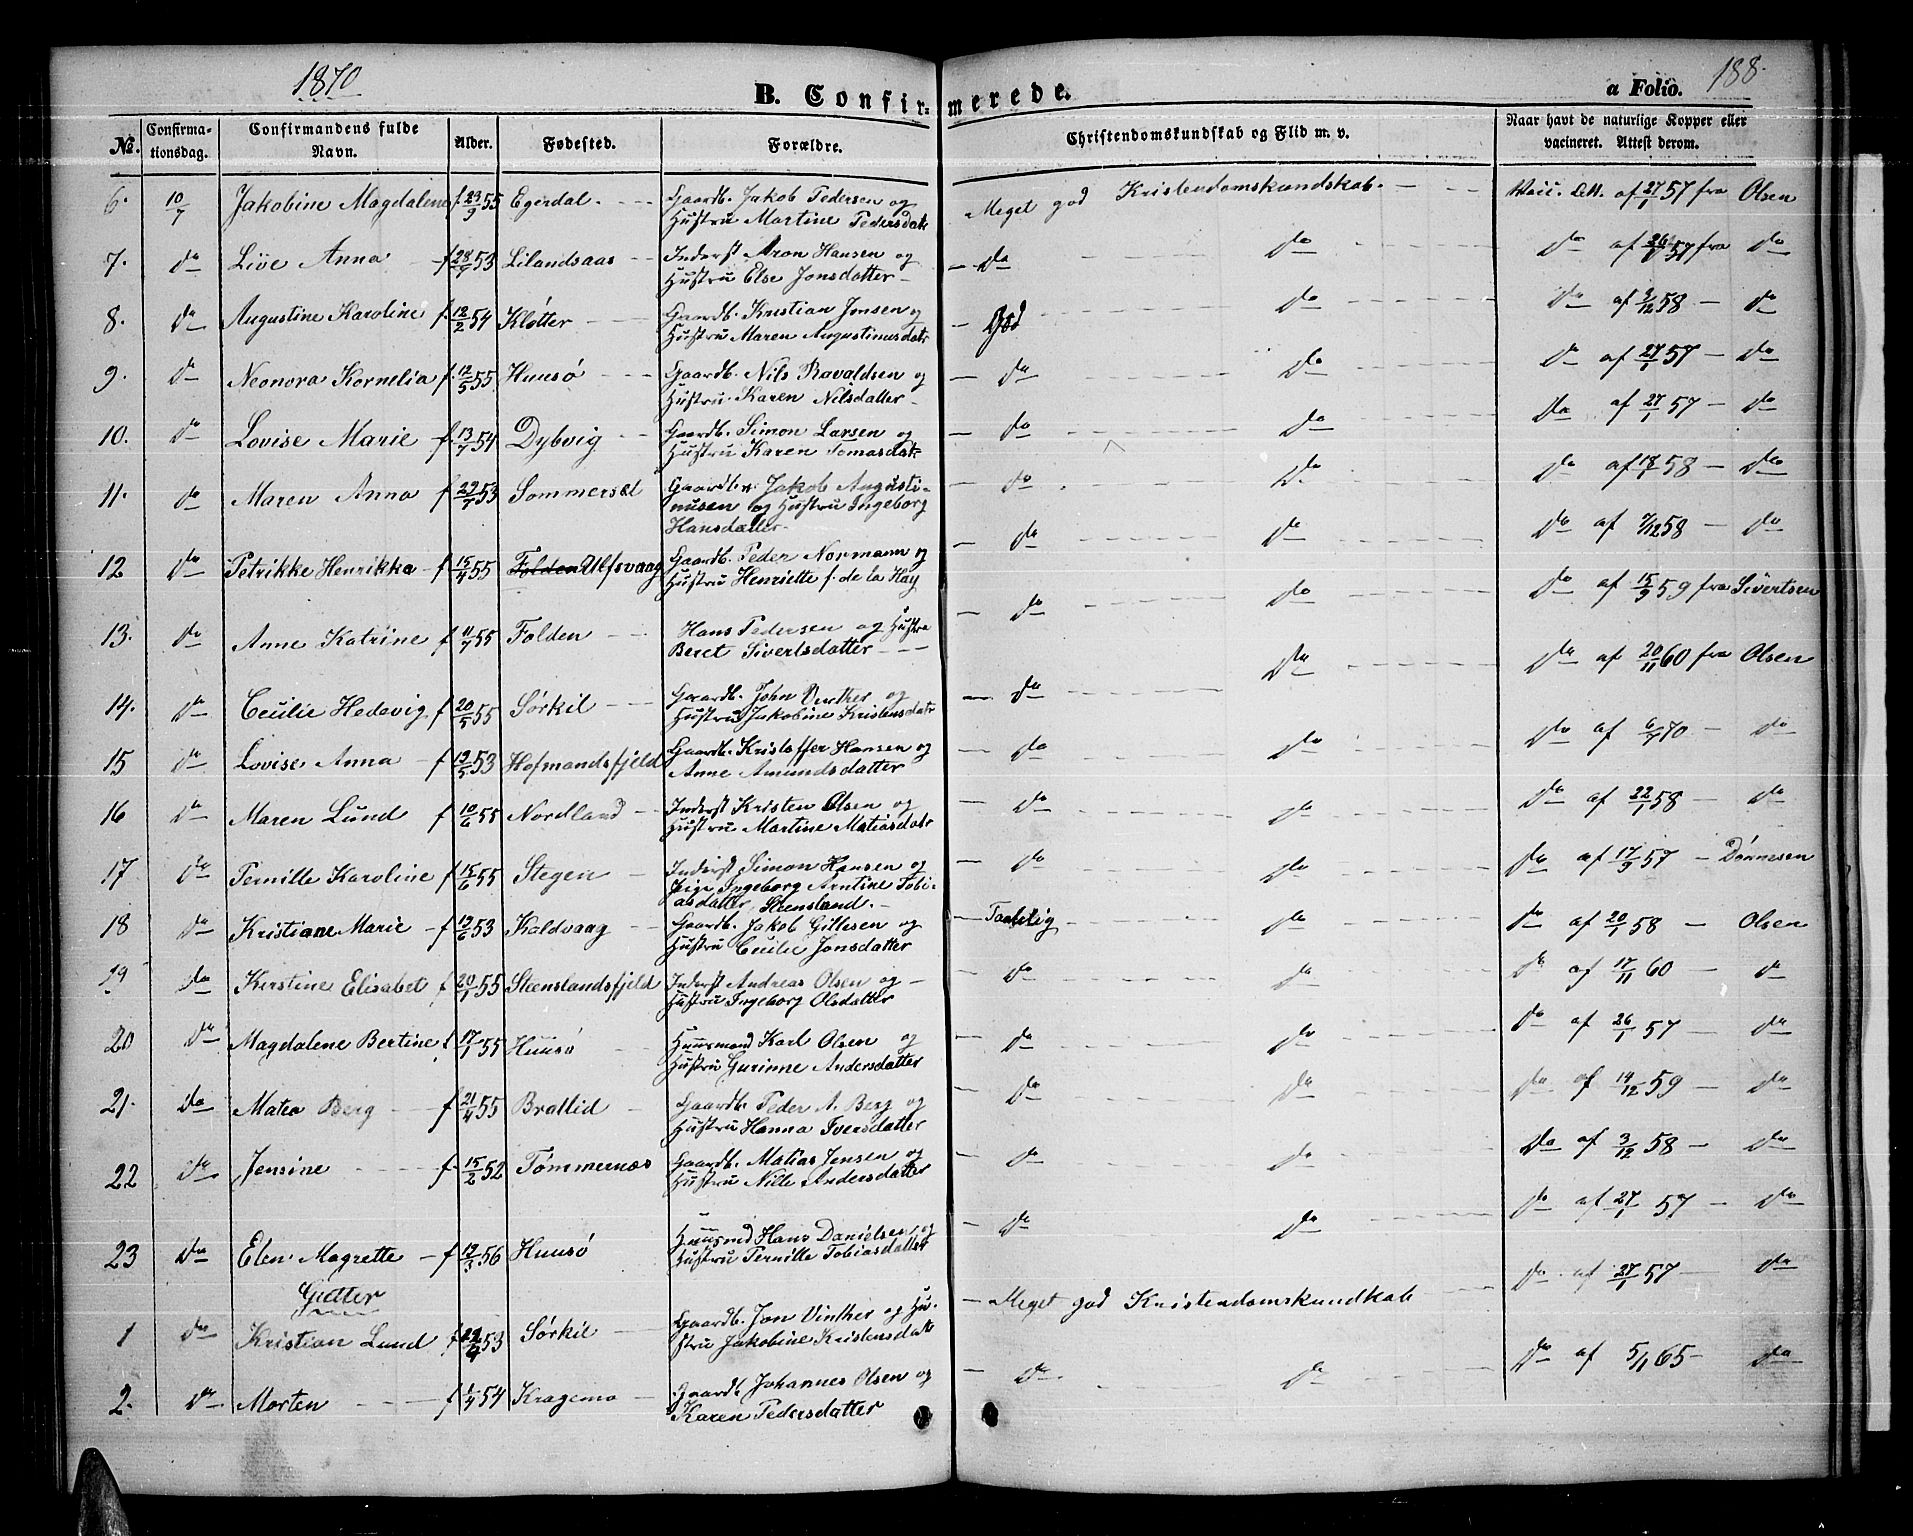 1870
B. Confirmerede.
a Folio. 188.
No. Confirmationsdag. Confirmandens fulde Navn. Alder. Fødested. Forældre. Christendomskundskab og Flid m. v. Naar havt de naturlige Kopper eller vacineret. Attest derom.
6. 10/7 Jakobine Magdalene f. 29/9 55 Egerdal. Gaardb. Jakob Pedersen og Hustru Martine Pedersdatr Meget god Kristendomskundskab. Vacc. Att. af 27/1 57 fra Olsen
7. do Live Anna f 28/7 53 Lilandsaas Inderst Aron Hansen og Hustru Else Jonsdatter do do do af 26/1 57 fra do
8. do Augustine Karoline f. 12/2 54 Kløtter Gaardb. Kristian Jonsen og Hustru Maren Augustinusdatr God do do af 3/12 58 do
9. do Neonora Kornelia f. 12/5 55 Huusø Gaardb. Nils Ravaldsen og Hustru Karen Nilsdatter do do do af 27/1 57 do
10. do Lovise Marie f. 13/7 54 Dybvig Gaardb. Simon Larsen og Hustru Karen Tomasdatr do do Do af 27/1 57 do
11. do Maren Anna f 29/7 53 Sommersel Gaardbr. Jakob Augustinusen og Hustru Ingeborg Hansdatter do Do do af 18/1 58 do
12 do Petrikke Henrikka f 15/4 55 Folden Ulfsvaag Gaardb. Peder Normann og Hustru Henriette f. de la Hay do do do af 7/12 58 do
13. do Anne Katrine f 11/7 55 Folden Hans Pedersen og Hustru Beret Sivertsdatter do do do af 15/9 59 fra Sivertsen
14. do Cecilie Hedevig f 20/5 55 Sørkil Gaardb. John Vinther og Hustru Jakobine Kristensdatr do do do af 20/11 60 fra Olsen
15 do Lovise Anna f 12/5 53 Hofmandsfjeld Gaardb. Kristoffer Hansen og Anne Amundsdatter do do do af 6/7 70 do
16 do Maren Lund f 10/6 55 Nordland Inderst Kristen Olsen og Hustru Martine Matiasdatr do do do af 22/1 58 do
17 do Pernille Karoline f 15/6 55 Stegen Inderst Simon Hansen og Pige Ingeborg Arntine Tobiasdatter Steensland. do do do af 17/9 57 Dønnesen
18 do Kristiane Marie f 12/6 53 Kaldvaag Gaardb. Jakob Gillesen og Hustru Cecilie Jonsdatter Taalelig do do af 20/1 58 Olsen
19 do Kerstine Elisabet f 20/1 55 Steenslandsfjeld Inderst Andreas Olsen og Hustru Ingeborg Olsdatter do do do af 17/11 60 do
20 do Magdalene Bertine f. 17/1 55 Huusø Huusmand Karl Olsen og Hustru Gurinne Andersdatter do do do af 26/1 57 do
21. do Matea Berg f 21/4 55 Brottid Gaardb. Peder A. Berg og Hustru Hanna Iversdatter do do do af 14/12 59 do
22 do Jensine f. 15/2 52 Tømmernæs Gaardb. Matias Jensen og Hustru Nille Andersdatter do do Do af 3/12 58 do
23 do Elen Magrette f 12/3 56 Huusø Huusmd Hans Danielsen og Hustru Pernille Tobiasdatter do do do af 27/1 57 do
Gutter
1 do Kristian Lund f 53 Sørkil Gaardb. Jon Vinther og Hustru Jakobine Kristensdatr Meget god Kristendomskundkab do af 27/1 57 do
2. do Morten f 1/4 54 Kragemo Gaardb. Johannes Olsen og Karen Pedersdatter do do do af 5/1 65 do